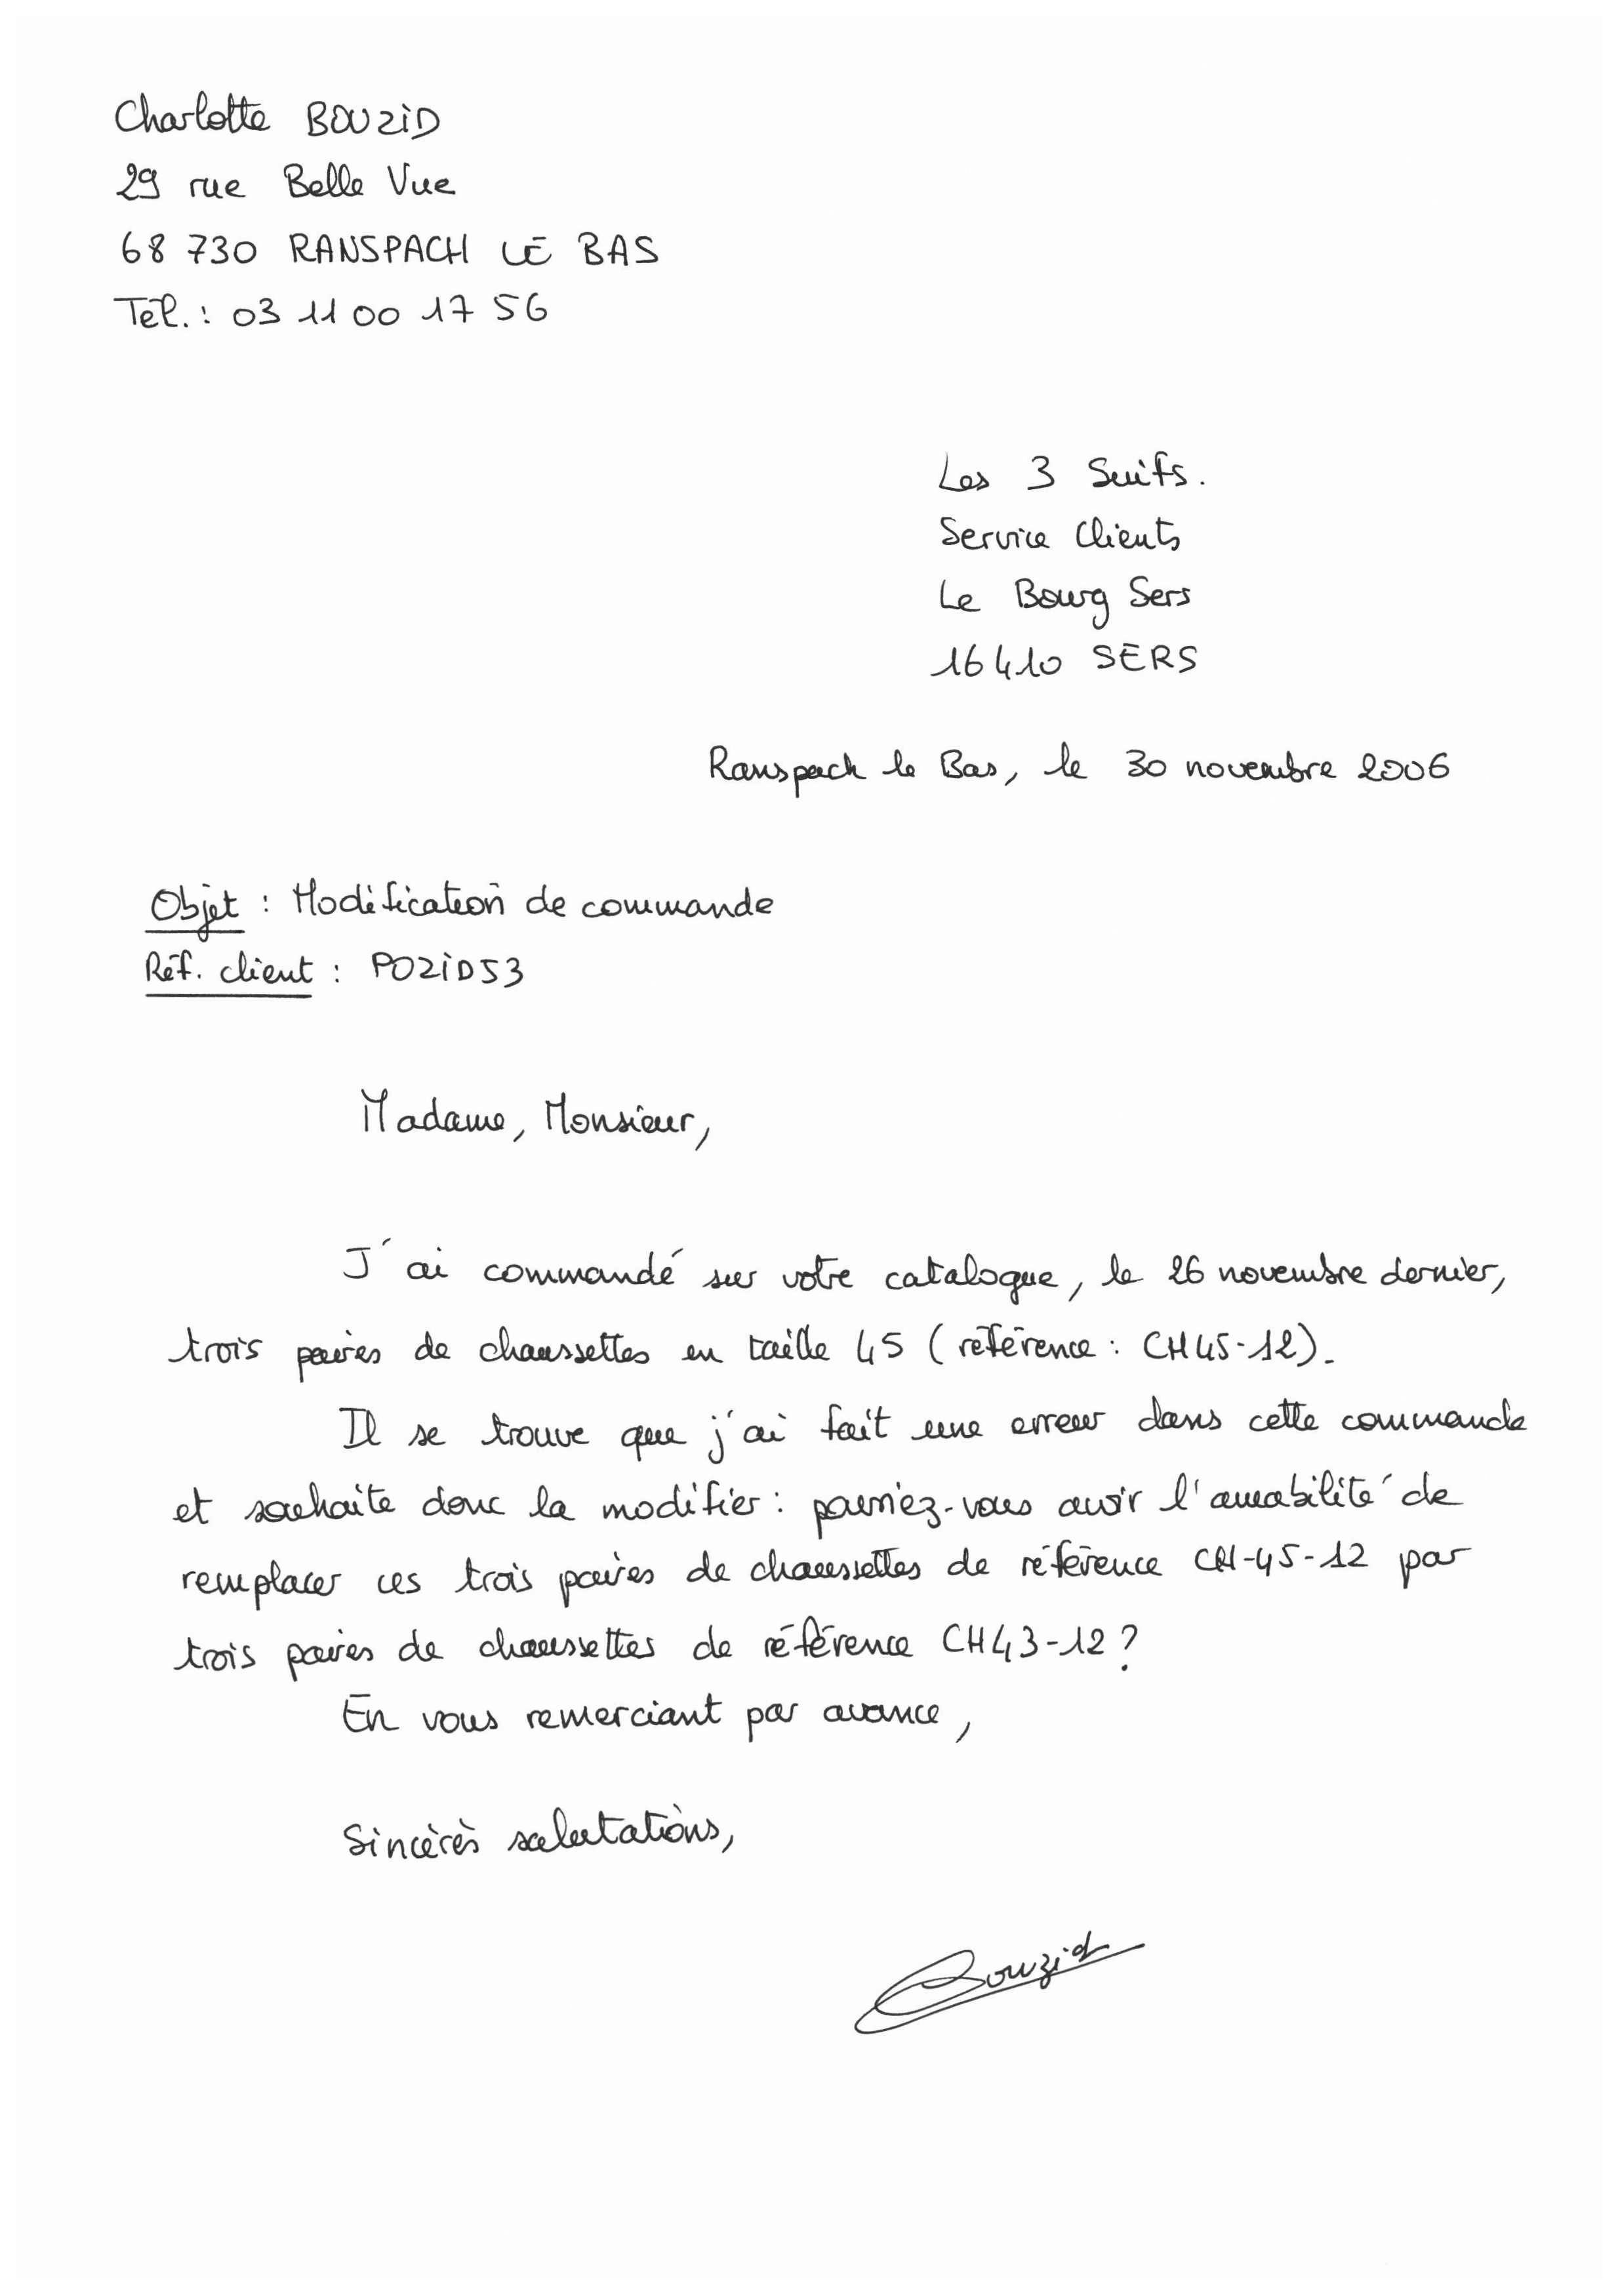 Charlotte BOUZID
29 rue Belle Vue
68 730 RANSPACH LE BAS
Tél. : 03 11 00 17 56
Les 3 Suifs.
Service Clients
Le Bourg Sers
16410 SERS
Ranspach le Bas, le 30 novembre 2006
Objet : Modification de commande
Réf. client : POZID53
Madame, Monsieur,
J'ai commandé sur votre catalogue, le 26 novembre dernier,
trois paires de chaussettes en taille 45 (référence : CH45-12).
Il se trouve que j'ai fait une erreur dans cette commande
et souhaite donc la modifier : pourriez-vous avoir l'amabilité de
remplacer ces trois paires de chaussettes de référence CH-45-12 par
trois paires de chaussettes de référence CH43-12 ?
En vous remerciant par avance,
Sincères salutations,
Bouzid